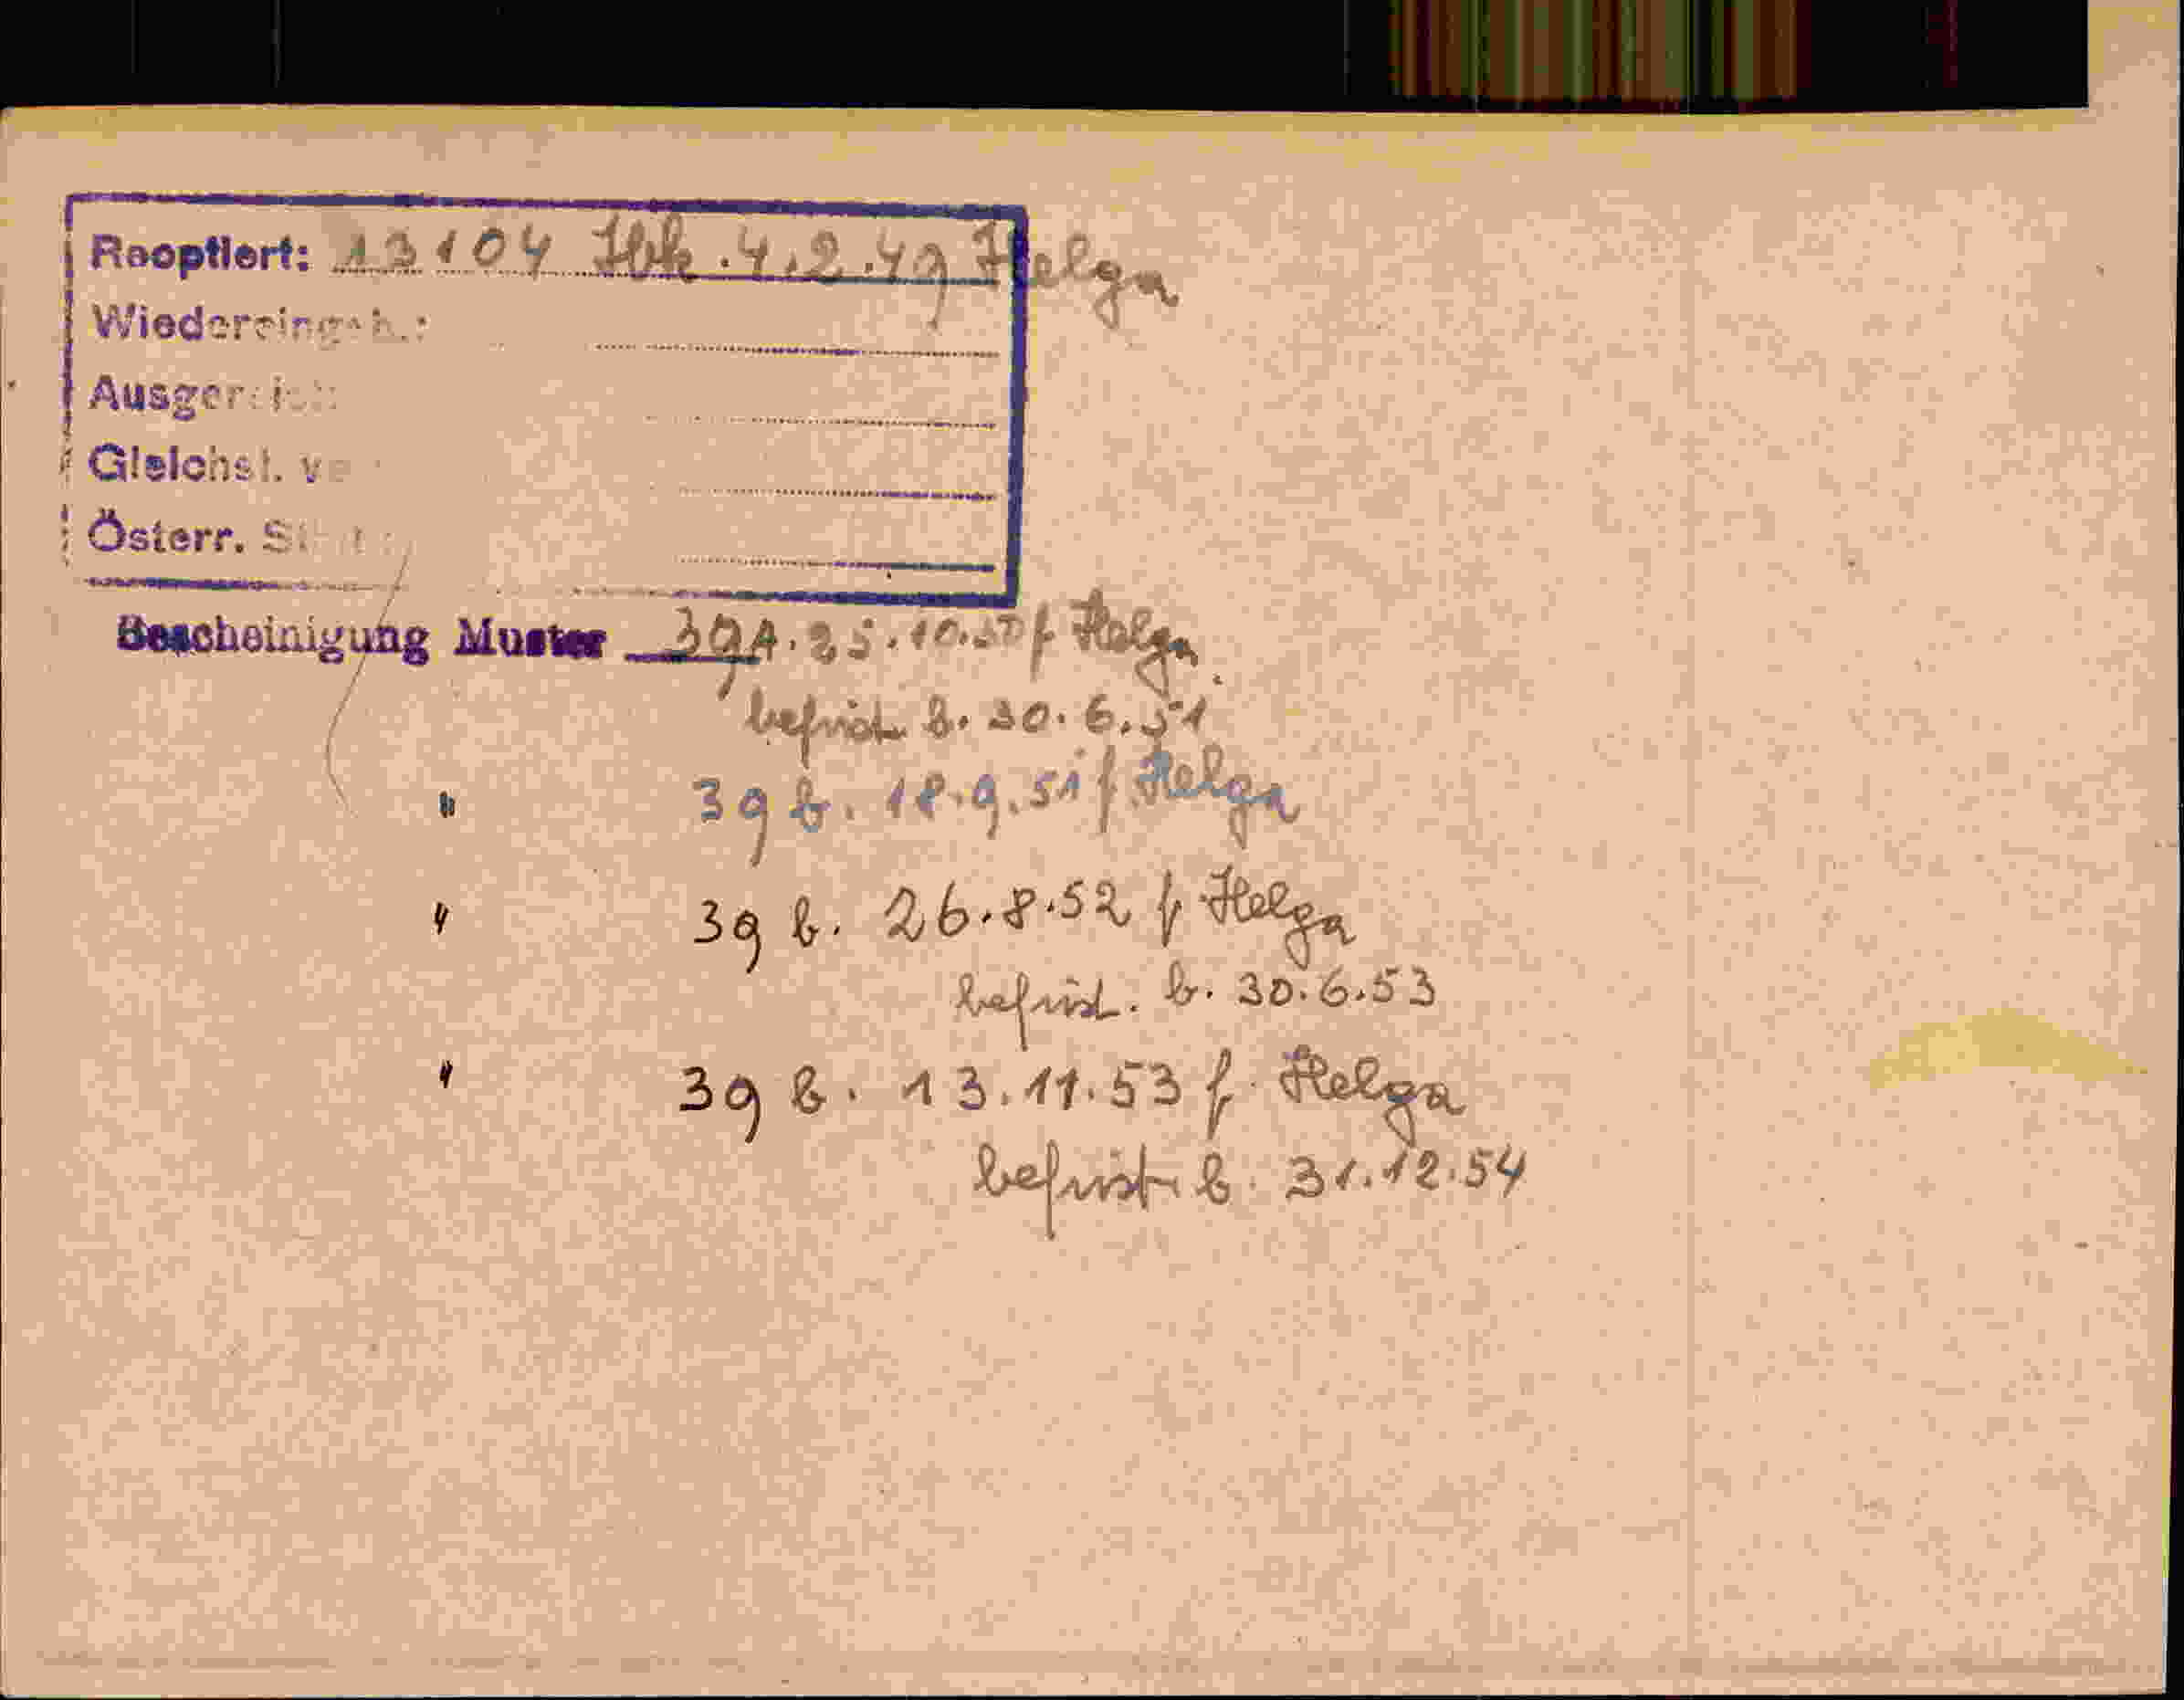 Reoptiert: 13104 Ibk. 4.2.49 Helga
Wiedereingeb.:
Ausgereist:
Gleichst.
Österr.
Bescheinigung Muster 39A. 25.10.50 f Helga
befrist. b. 30.6.51
" 39 b. 18.9.51 f. Helga
" 39 b. 26.8.52 f Helga
befrist. b. 30.6.53
" 39 b. 13.11.53 f. Helga
befrist. b. 31.12.54